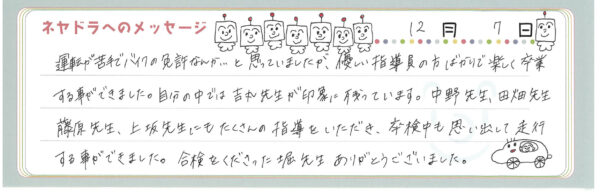 ネヤドラへのメッセージ 12月 7日
運転が苦手でバイクの免許なんか…と思っていましたが、優しい指導員の方ばかりで楽しく卒業
する事ができました。自分の中では吉札先生が印象に残っています。中野先生、田畑先生
藤原先生、上坂先生にもたくさんの指導をいただき、卒検中も思い出して走行
する事ができました。合検をくださった堀先生ありがとうございました。